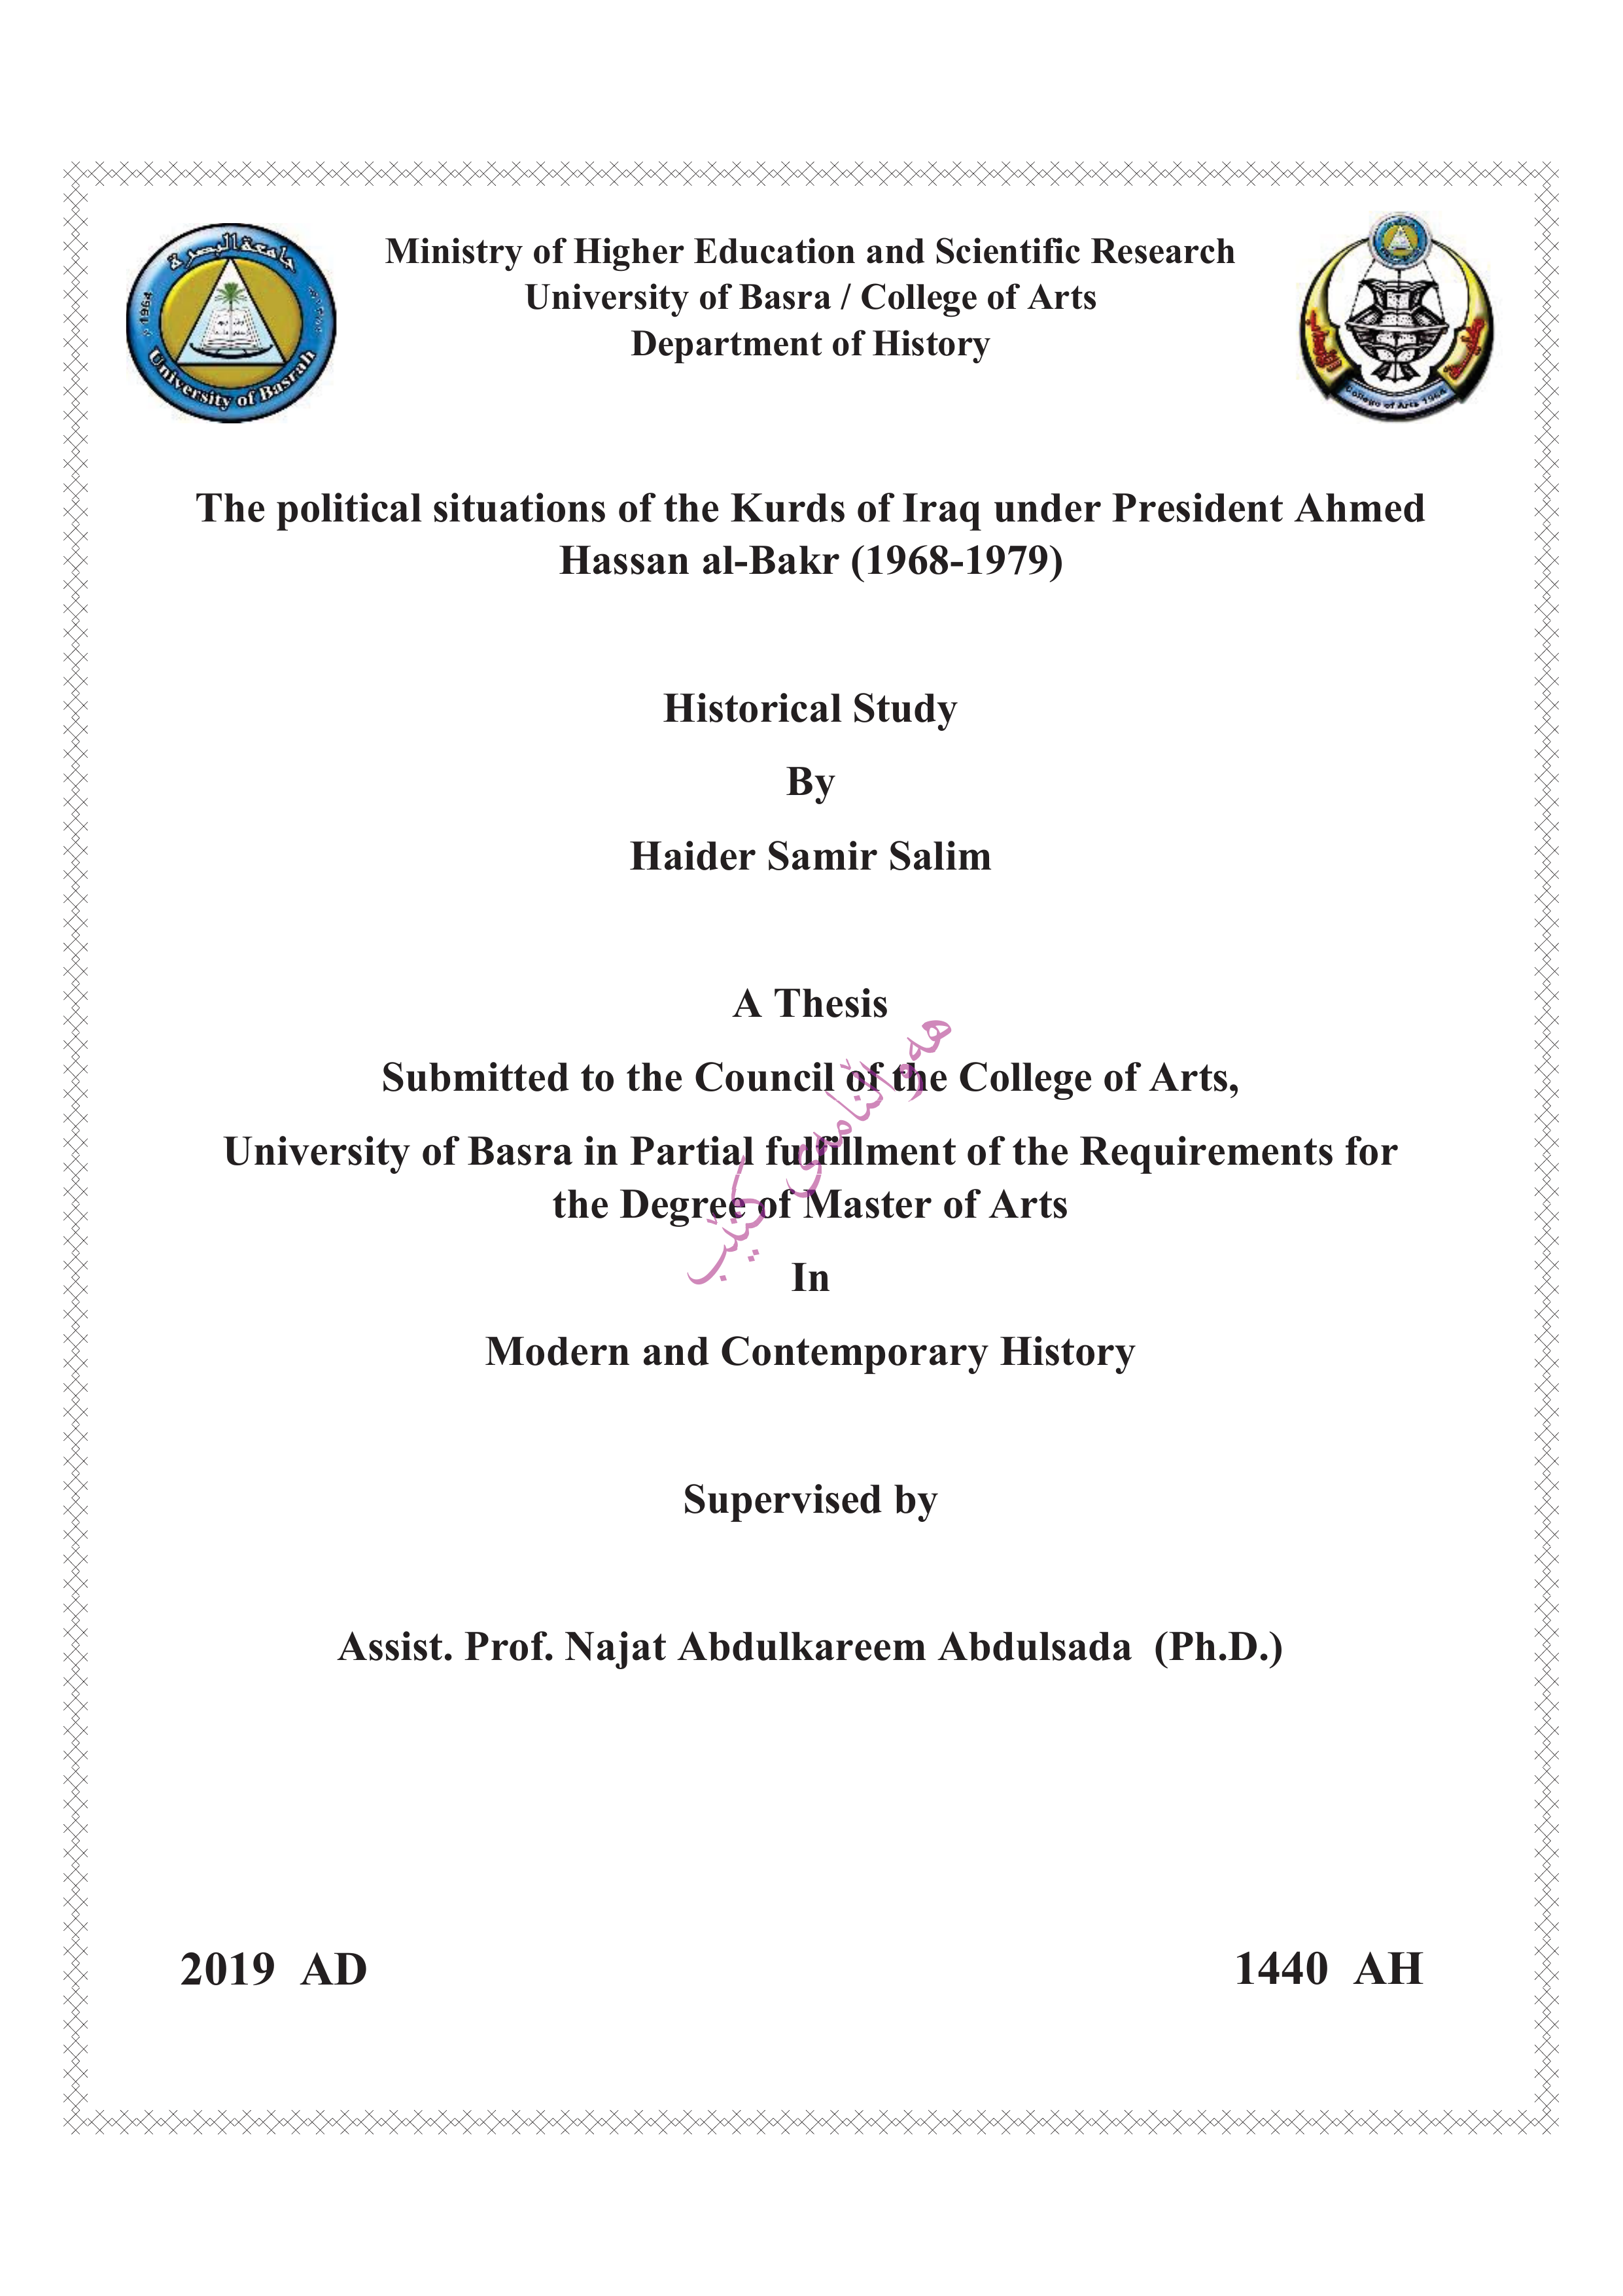 Ministry of Higher Education and Scientific Research
University of Basra / College of Arts
Department of History
جامعة البصرة
1964
University of Basrah
College of Arts 1964
The political situations of the Kurds of Iraq under President Ahmed
Hassan al-Bakr (1968-1979)
Historical Study
By
Haider Samir Salim
A Thesis
Submitted to the Council of the College of Arts,
University of Basra in Partial fulfillment of the Requirements for
the Degree of Master of Arts
In
Modern and Contemporary History
هەواڵنامەی کتێب
Supervised by
Assist. Prof. Najat Abdulkareem Abdulsada (Ph.D.)
2019 AD
1440 AH